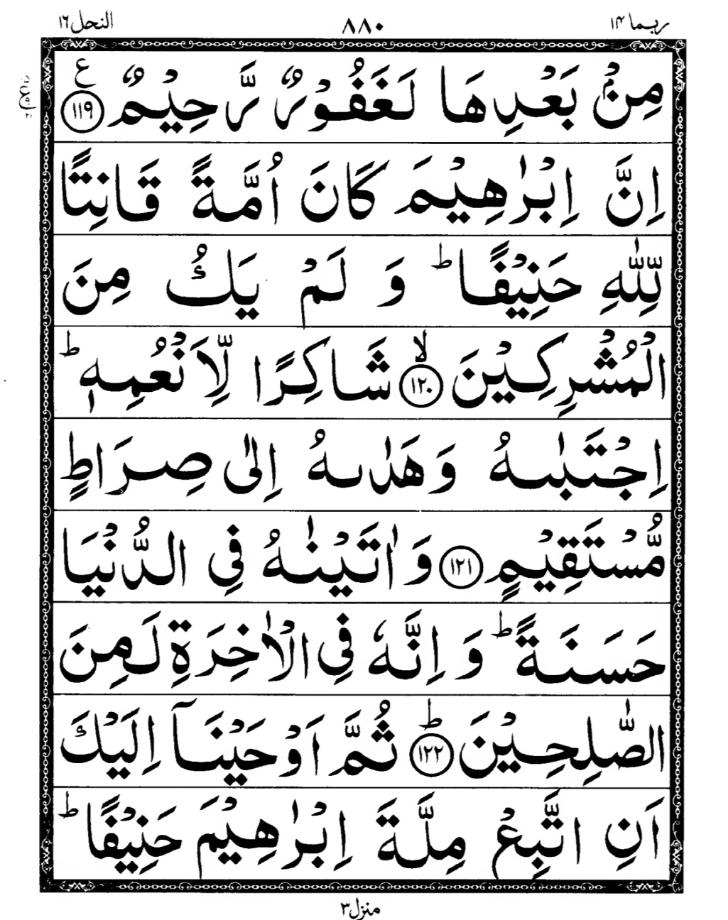 ربما ۱۴ ۸۸۰ النحل ۱۶
مِنْۢ بَعْدِهَا لَغَفُوْرٌ رَّحِيْمٌ ﴿۱۱۹﴾ ع
اِنَّ اِبْرٰهِيْمَ كَانَ اُمَّةً قَانِتًا
لِّلّٰهِ حَنِيْفًا ؕ وَ لَمْ يَكُ مِنَ
الْمُشْرِكِيْنَ ۙ﴿۱۲۰﴾ شَاكِرًا لِّاَنْعُمِهٖ ؕ
اِجْتَبٰىهُ وَهَدٰىهُ اِلٰى صِرَاطٍ
مُّسْتَقِيْمٍ ﴿۱۲۱﴾ وَاٰتَيْنٰهُ فِي الدُّنْيَا
حَسَنَةً ؕ وَ اِنَّهٗ فِي الْاٰخِرَةِ لَمِنَ
الصّٰلِحِيْنَ ؕ﴿۱۲۲﴾ ثُمَّ اَوْحَيْنَاۤ اِلَيْكَ
اَنِ اتَّبِعْ مِلَّةَ اِبْرٰهِيْمَ حَنِيْفًا ؕ
منزل ۳